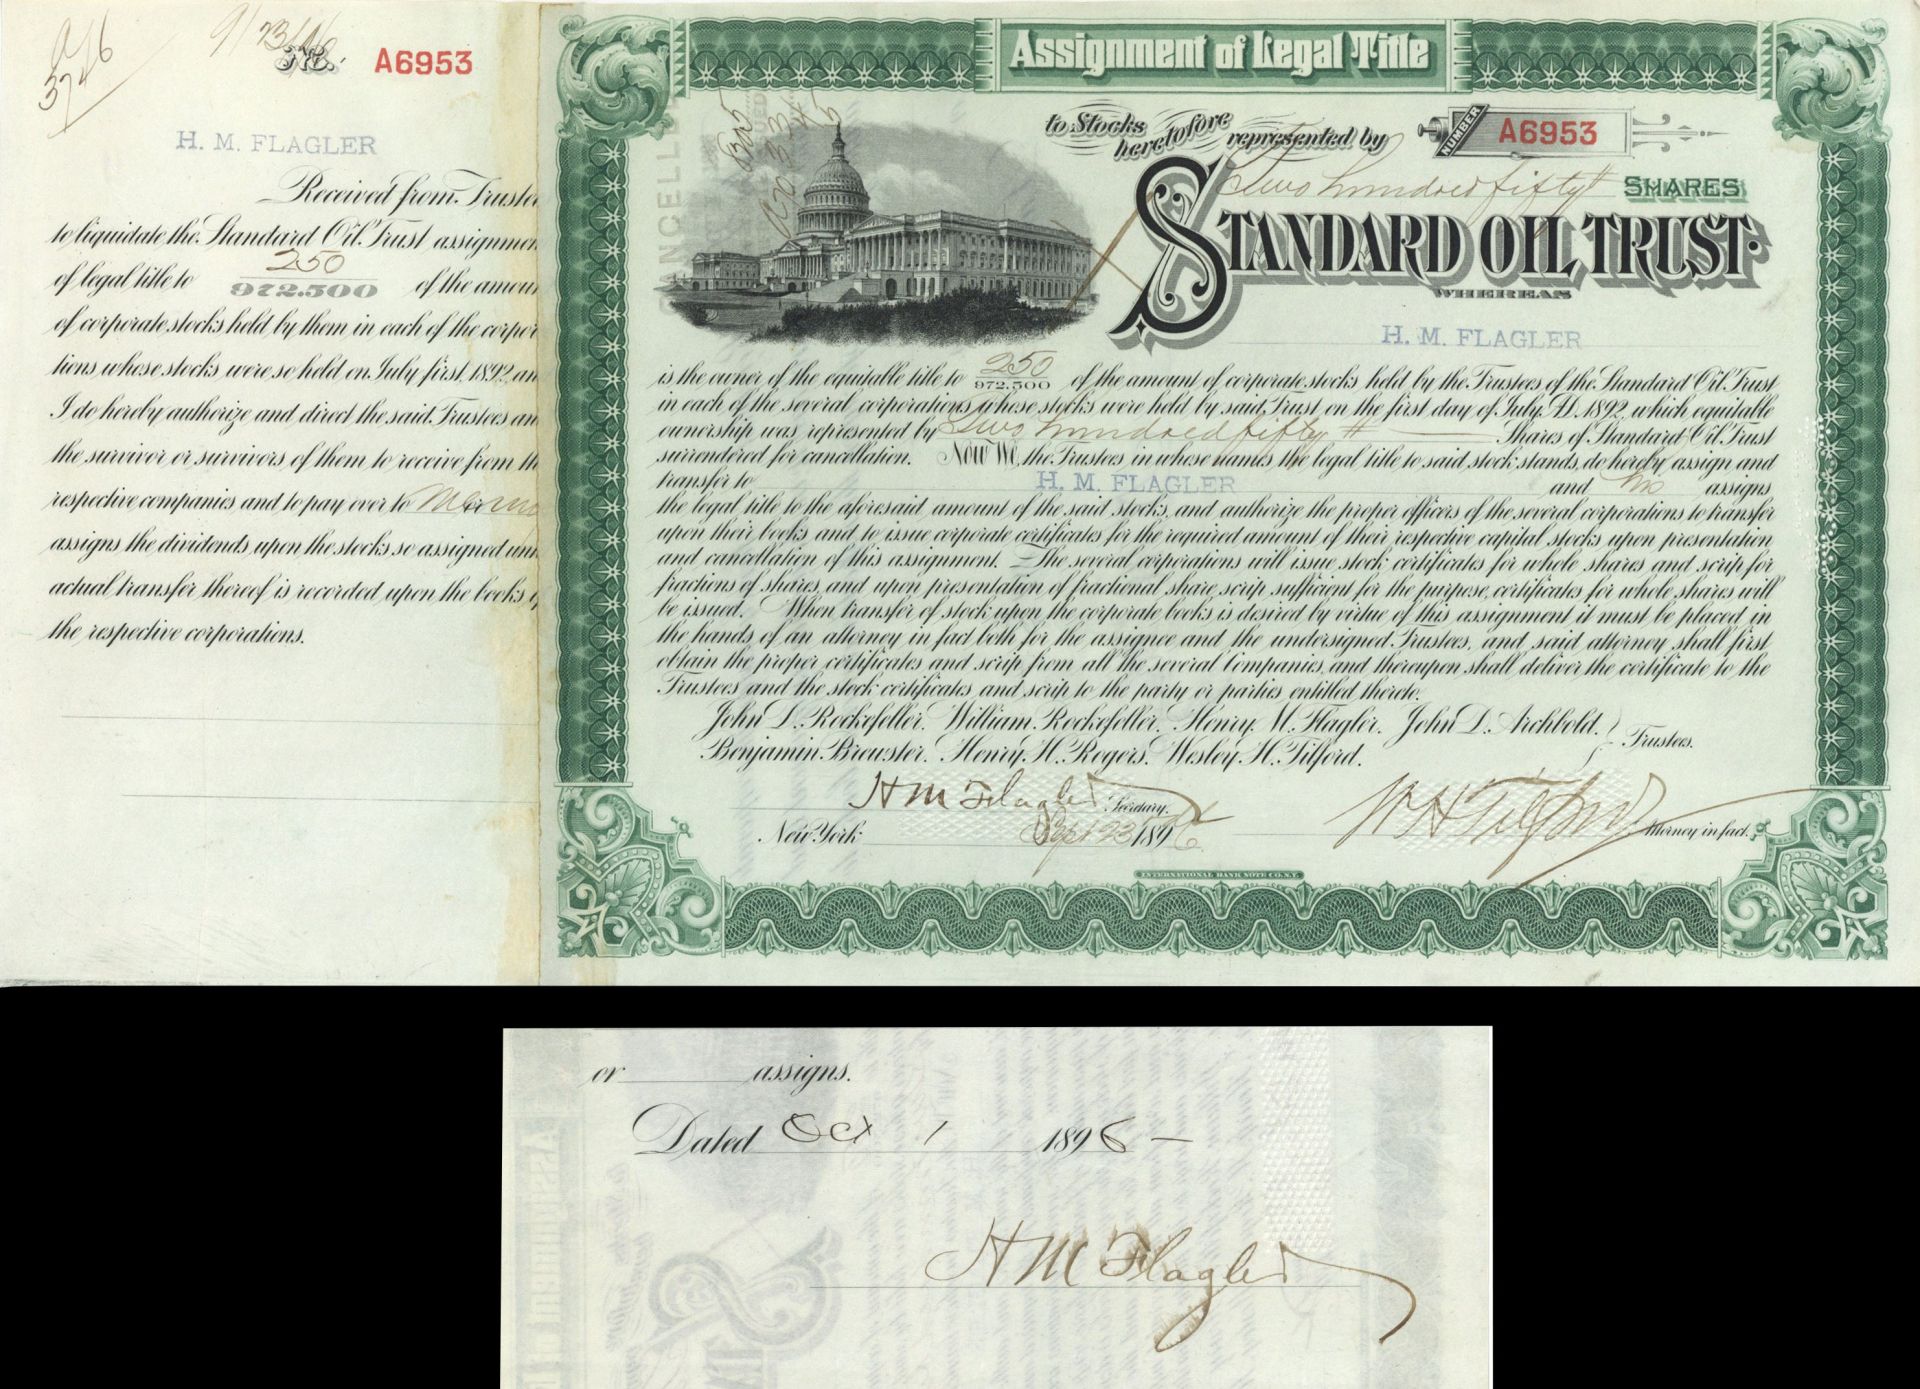 9/23/96
No. A6953
3746
H. M. FLAGLER
Received from Trustees
to liquidate the Standard Oil Trust assignmen
of legal title to 250/972.500 of the amoun
of corporate stocks held by them in each of the corpor
tions whose stocks were so held on July first 1892, an
I do hereby authorize and direct the said Trustees an
the survivor or survivors of them to receive from th
respective companies and to pay over to me or my
assigns the dividends upon the stocks so assigned unti
actual transfer thereof is recorded upon the books o
the respective corporations.
Assignment of Legal Title
to Stocks heretofore represented by
NUMBER A6953
Two hundred fifty SHARES
STANDARD OIL TRUST.
WHEREAS
H. M. FLAGLER
is the owner of the equitable title to 250/972.500 of the amount of corporate stocks held by the Trustees of the Standard Oil Trust
in each of the several corporations whose stocks were held by said Trust on the first day of July, A.D. 1892, which equitable
ownership was represented by Two hundred fifty Shares of Standard Oil Trust
surrendered for cancellation. Now We, the Trustees in whose names the legal title to said stock stands, do hereby assign and
transfer to H. M. FLAGLER and his assigns
the legal title to the aforesaid amount of the said stocks, and authorize the proper officers of the several corporations to transfer
upon their books and to issue corporate certificates for the required amount of their respective capital stocks upon presentation
and cancellation of this assignment. The several corporations will issue stock certificates for whole shares and scrip for
fractions of shares, and upon presentation of fractional share scrip sufficient for the purpose, certificates for whole shares will
be issued. When transfer of stock upon the corporate books is desired by virtue of this assignment it must be placed in
the hands of an attorney in fact both for the assignee and the undersigned Trustees, and said attorney shall first
obtain the proper certificates and scrip from all the several Companies, and thereupon shall deliver the certificate to the
Trustees and the stock certificates and scrip to the party or parties entitled thereto.
John D. Rockefeller. William Rockefeller. Henry M. Flagler. John D. Archbold.
Benjamin Brewster. Henry H. Rogers. Wesley H. Tilford. Trustees.
H M Flagler Secretary.
W H Tilford Attorney in fact.
New York Sept 23 1896
INTERNATIONAL BANK NOTE CO. N.Y.
or assigns.
Dated Oct 1 1896
H M Flagler